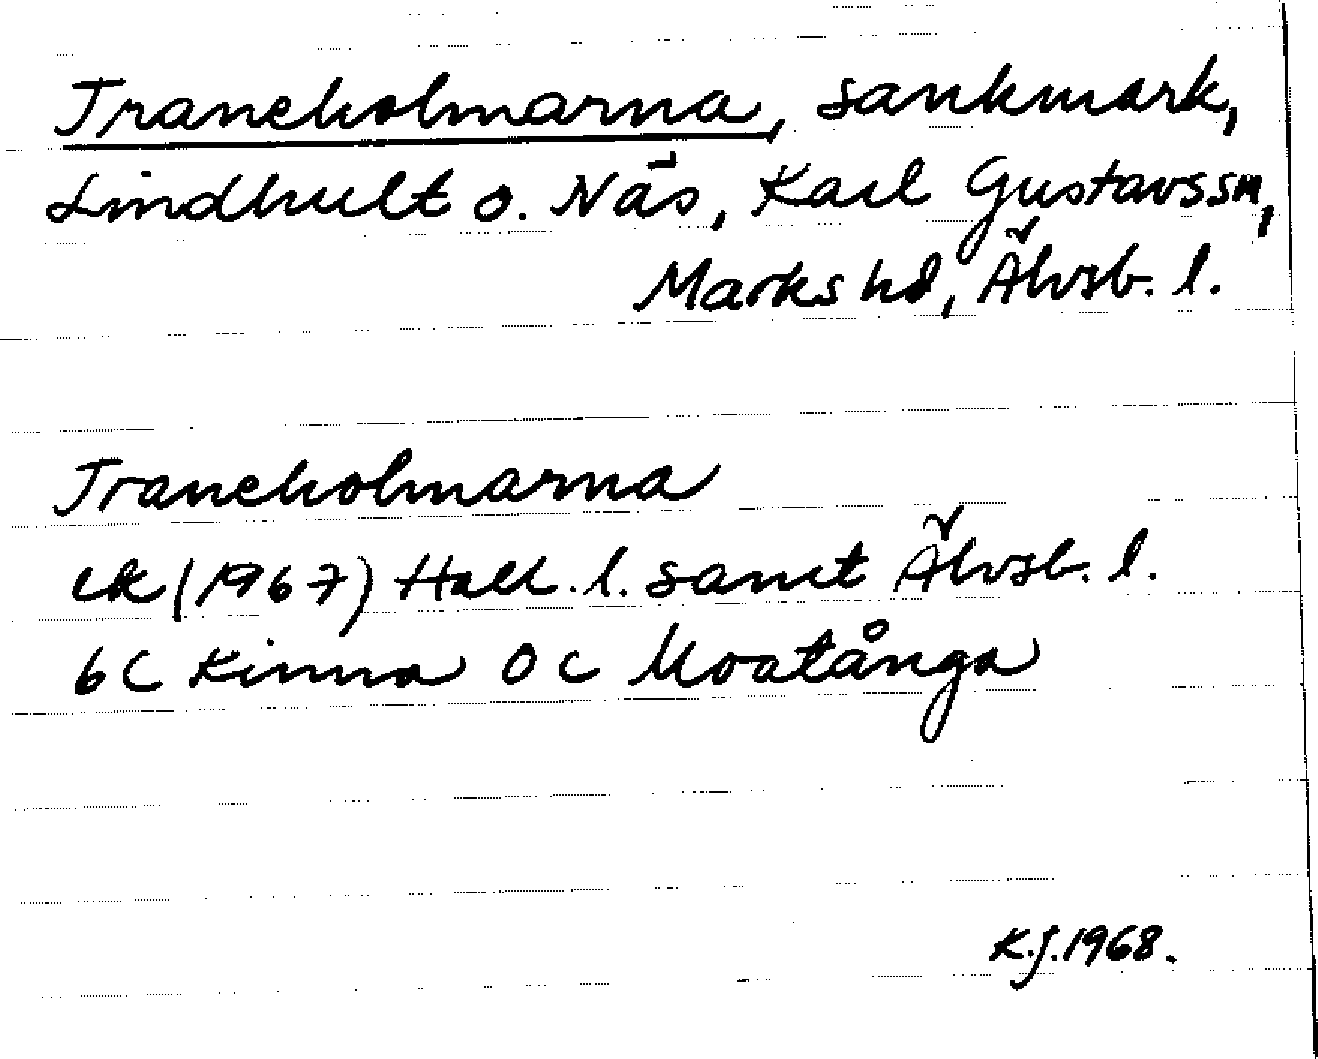 Traneholmarna, sankmark,
Lindhult o. Näs, Karl Gustavssn,
Marks hd, Älvsb. l.
Traneholmarna
ek (1967) Hall. l. samt Älvsb. l.
6C Kinna 0 c Moatånga
K.J. 1968.